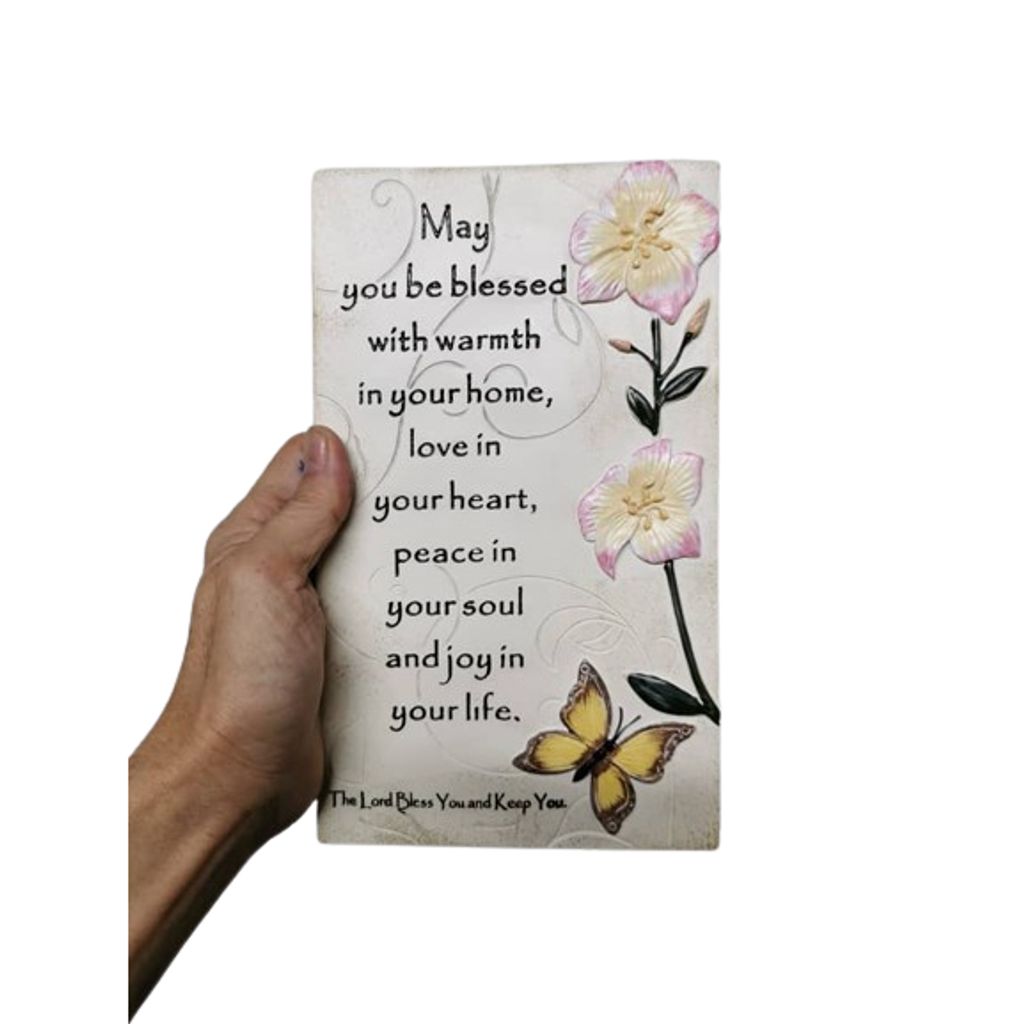 May
you be blessed
with warmth
in your home,
love in
your heart,
peace in
your soul
and joy in
your life.
The Lord Bless You and Keep You.